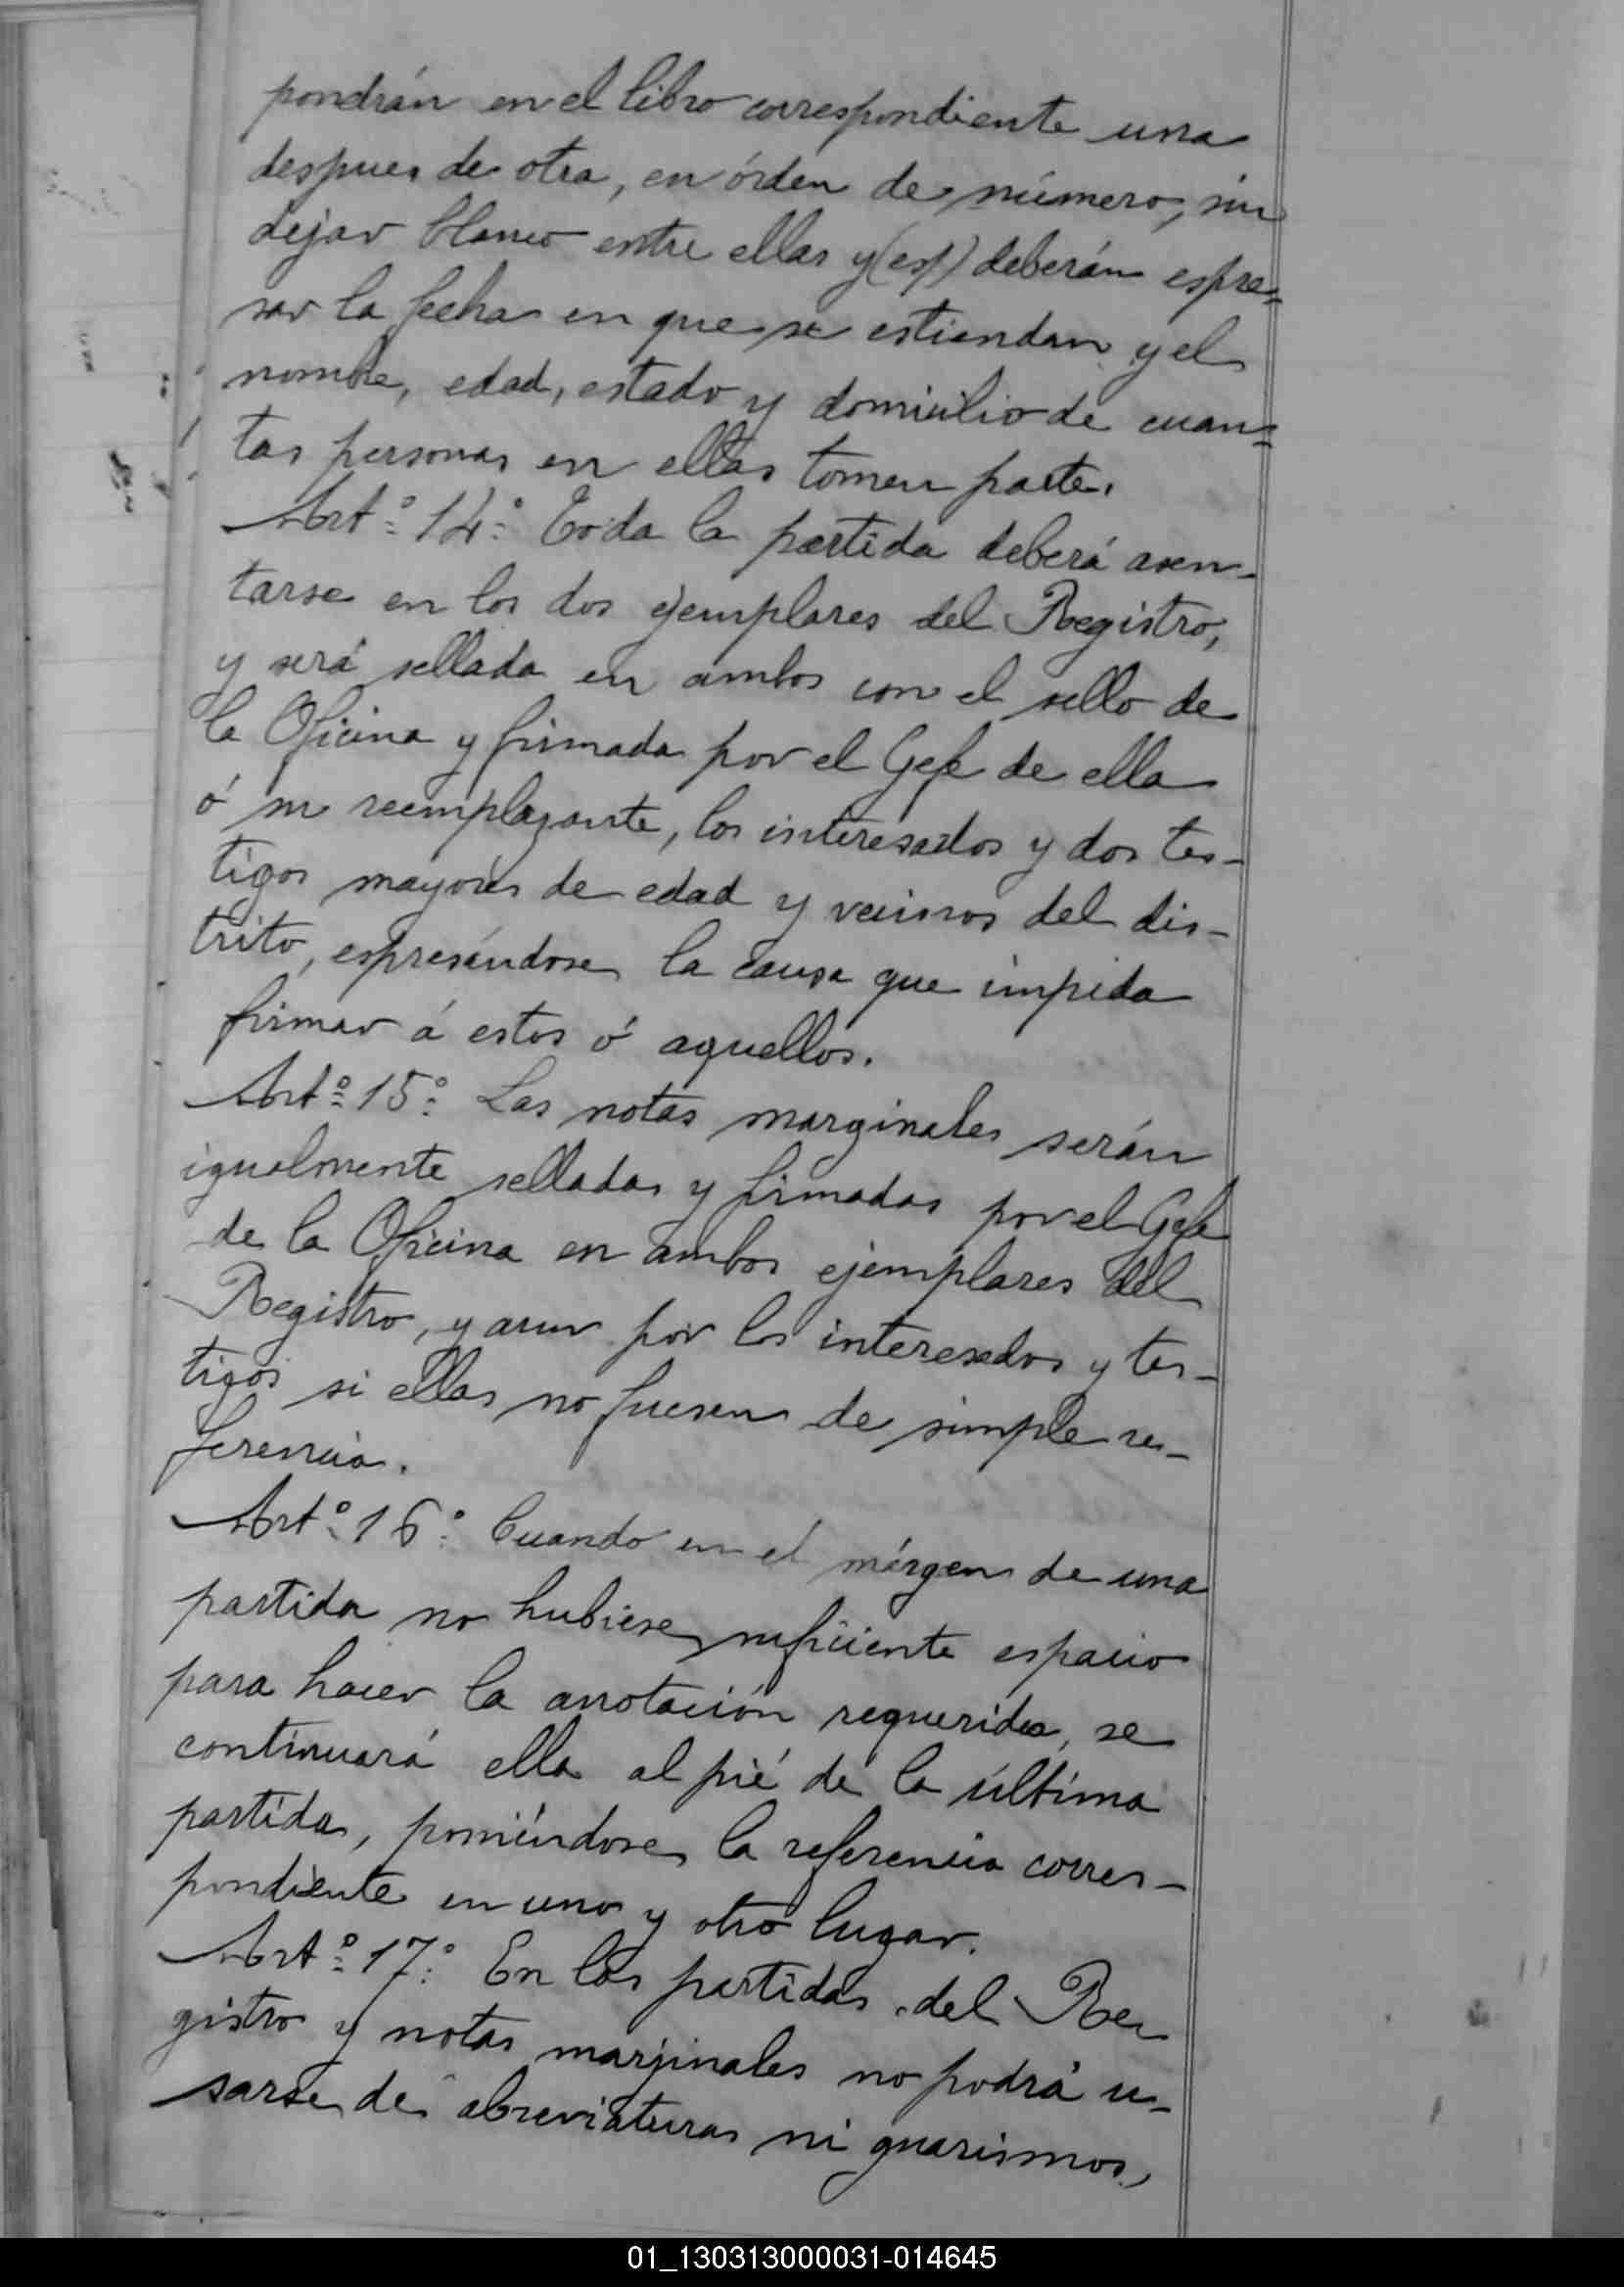 pondrán en el libro correspondiente una
despues de otra, en órden de número, sin
dejar blanco entre ellas y (esp) deberán espre=
sar la fecha en que se estiendan y el
nombre, edad, estado y domicilio de cuan=
tas personas en ellas tomen parte.
Artº 14º Toda la partida deberá asen-
tarse en los dos ejemplares del Registro,
y será sellada en ambos con el sello de
la Oficina y firmada por el Gefe de ella
ó su reemplazante, los interesados y dos tes-
tigos mayores de edad y vecinos del dis-
trito, espresándose la causa que impida
firmar á estos ó aquellos.
Artº 15º Las notas marginales serán
igualmente selladas y firmadas por el Gefe
de la Oficina en ambos ejemplares del
Registro, y aun por los interesados y tes-
tigos si ellas no fuesen de simple re-
ferencia.
Artº 16º Cuando en el márgen de una
partida no hubiese suficiente espacio
para hacer la anotación requerida, se
continuará ella al pié de la última
partida, poniéndose la referencia corres-
pondiente en uno y otro lugar.
Artº 17º En las partidas del Re-
gistro y notas marjinales no podrá u-
sarse de abreviaturas ni guarismos,
01_130313000031-014645